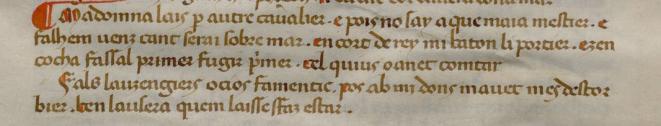 Ma domna lais p autre caualier · e pois no say a que maia mestier · e
falhem uenz cant serai sobre mar · en cort de rey mi baton li portier · ez en
cocha fassal primer fugir p̄mer · e el quius o anet comtar
Fals lauzengiers ocios famentic · pos ab mi dons mauet mes destor
bier · ben lausera quem laissessaz estar ·